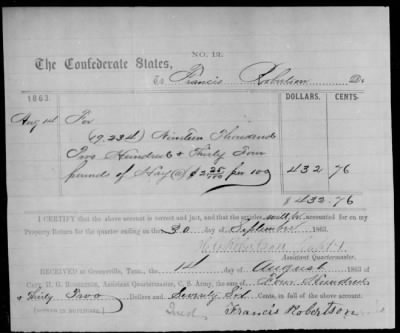 NO. 12.
The Confederate States,
To Francis Robertson Dr.
1863. DOLLARS. CENTS.
Aug 14 For
(19,234) Nineteen Thousand
Two Hundred & Thirty Four
pounds of Hay @ $2 25/100 per 100 432 76
$ 432.76
I CERTIFY that the above account is correct and just, and that the articles will be accounted for on my
Property Return for the quarter ending on the 30 day of September 1863.
Capt &
Assistant Quartermaster.
RECEIVED at Greeneville, Tenn., the 14 day of August 1863 of
Capt. H. G. ROBERTSON, Assistant Quartermaster, C. S. Army, the sum of Four Hundred
& Thirty Two Dollars and Seventy Six Cents, in full of the above account.
[SIGNED IN DUPLICATE.] Francis Robertson